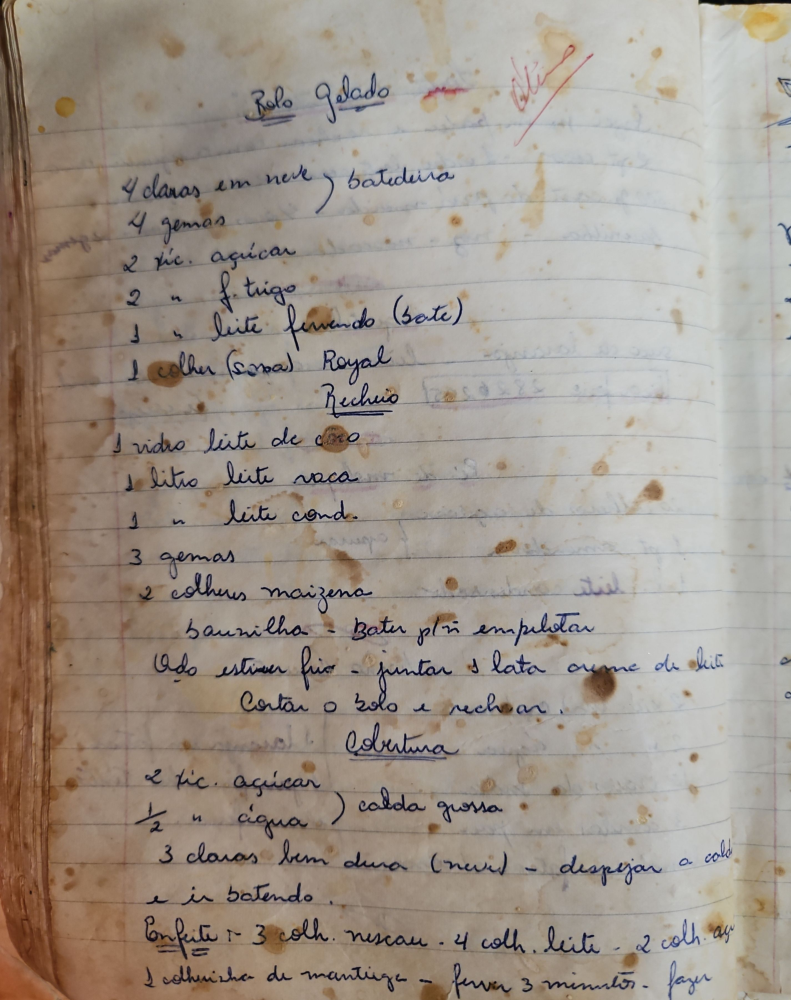 Bolo Gelado
4 claras em neve ) batedeira
4 gemas
2 xic. açúcar
2 " f. trigo
1 " leite fervendo (bate)
1 colher (sopa) Royal
Recheio
1 vidro leite de côco
1 litro leite vaca
1 " leite cond.
3 gemas
2 colheres maizena
baunilha - Bater p/ñ empelotar
Qdo estiver frio - juntar 1 lata creme de leite
Cortar o bolo e rechear.
Cobertura
2 xic. açúcar
1/2 " água ) calda grossa
3 claras bem dura (neve) - despejar a cald
e ir batendo.
Enfeite :- 3 colh. nescau - 4 colh. leite - 2 colh. açu
1 colherinha de manteiga - ferver 3 minutos - fazer